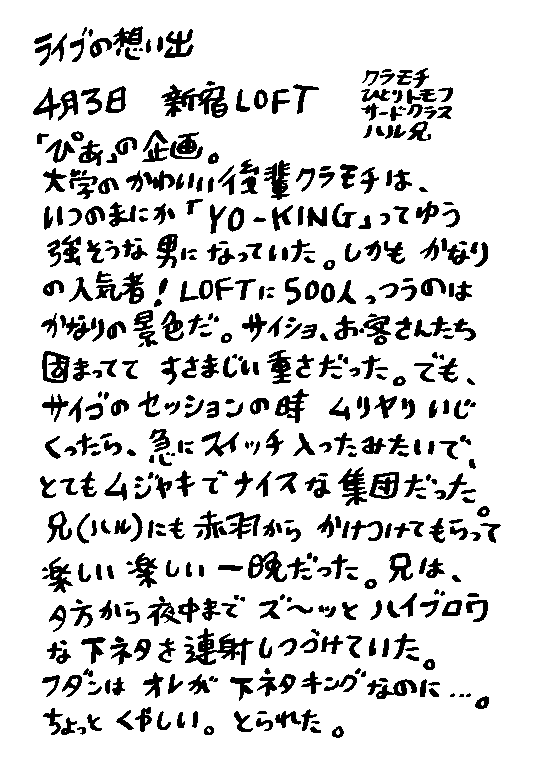 ライブの想い出
4月3日 新宿LOFT
クラモチ
ひとりトモフ
サードクラス
ハル兄
「ぴあ」の企画。
大学のかわいい後輩クラモチは、
いつのまにか「YO-KING」ってゆう
強そうな男になっていた。しかも かなり
の人気者！LOFTに500人っつうのは
かなりの景色だ。サイショ、お客さんたち
固まってて すさまじい重さだった。でも、
サイゴのセッションの時 ムリヤリ いじ
くったら、急にスイッチ入ったみたいで、
とてもムジャキでナイスな集団だった。
兄(ハル)にも赤羽から かけつけてもらって
楽しい 楽しい 一晩だった。兄は、
夕方から夜中まで ズ〜ッと ハイブロウ
な 下ネタを連射しつづけていた。
フダンは オレが 下ネタキングなのに…。
ちょっと くやしい。とられた。